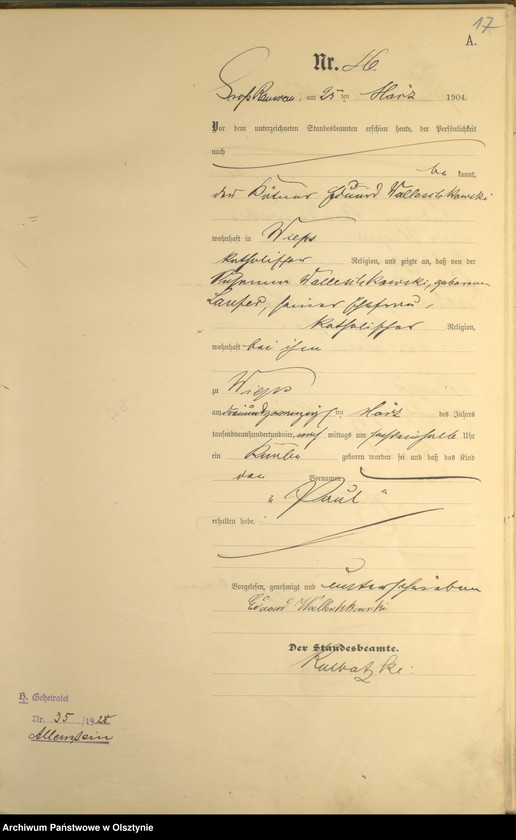 17
A.
Nr. 46.
Groß Ramsau, am 25 ten März 1904.
Vor dem unterzeichneten Standesbeamten erschien heute, der Persönlichkeit
nach
be kannt,
der Kätner Eduard Walleschkowski
wohnhaft in Wieps
katholischer Religion, und zeigte an, daß von der
Walleschkowski, geborenen
seiner Ehefrau,
katholischer Religion,
wohnhaft bei ihm
zu Wieps
am dreiundzwanzigsten März des Jahres
tausendneunhundertundvier, nach mittags um Uhr
ein Knabe geboren worden sei und daß das Kind
den Vornamen
"Paul"
erhalten habe.
Vorgelesen, genehmigt und unterschrieben
Eduard Walleschkowski
Der Standesbeamte.
H. Geheiratet
Nr. 95/1928
Allenstein
Archiwum Państwowe w Olsztynie